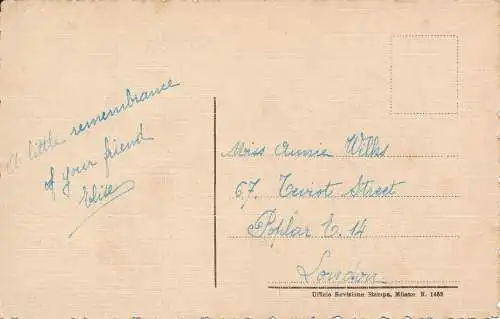 A little remembrance
of your friend
Elise
Miss Annie Willis
67, Teviot Street
Poplar E. 14
London
Ufficio Revisione Stampa, Milano N. 1468